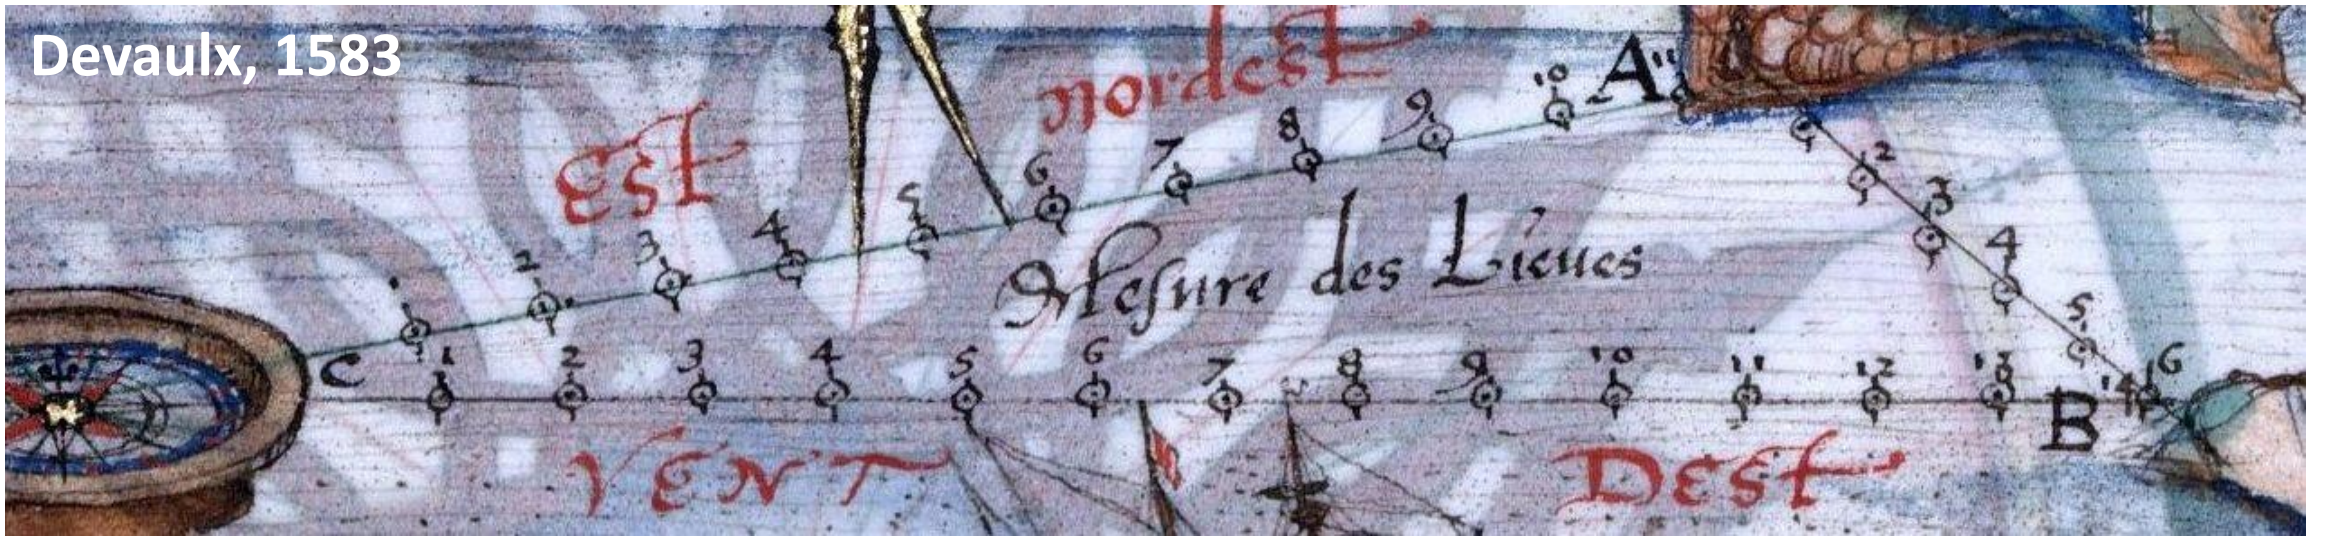 Devaulx, 1583
Est nordest
1 2 3 4 5 6 7 8 9 10 A 11
2 3 4 5 6
Mesure des Lieues
C 1 2 3 4 5 6 7 8 9 10 11 12 13 B 14
VENT DEst